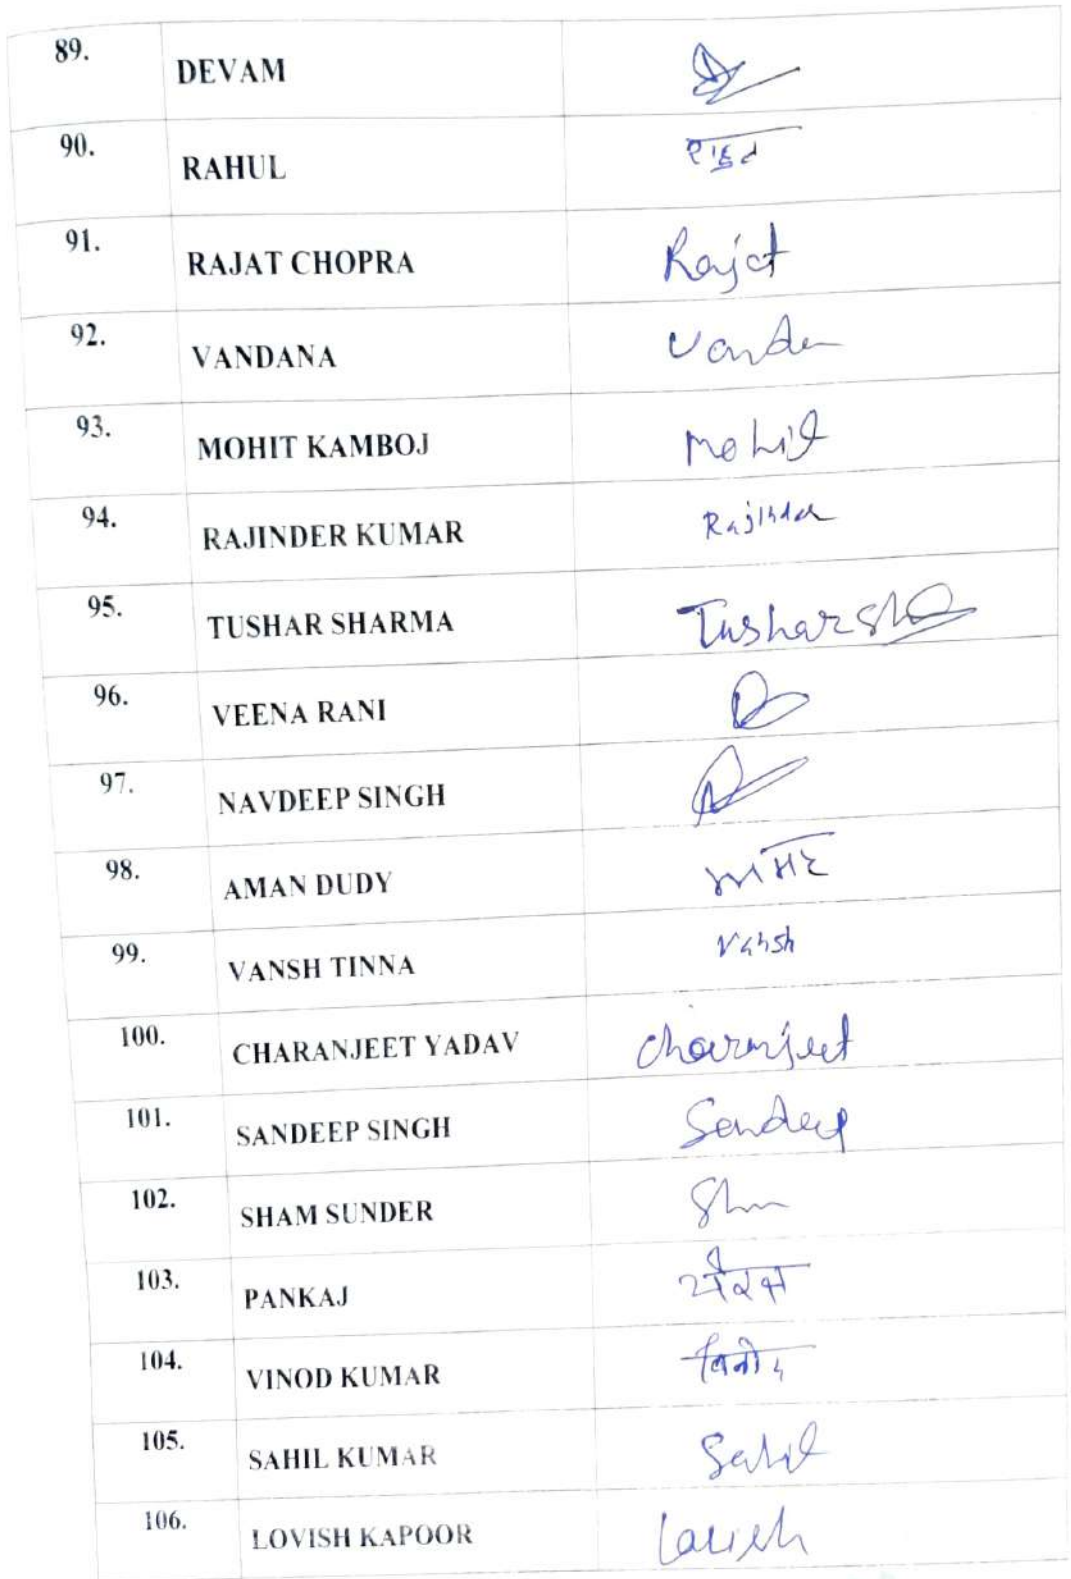 89. DEVAM
90. RAHUL राहुल
91. RAJAT CHOPRA Rajat
92. VANDANA
93. MOHIT KAMBOJ Mohit
94. RAJINDER KUMAR Rajinder
95. TUSHAR SHARMA Tushar
96. VEENA RANI
97. NAVDEEP SINGH
98. AMAN DUDY
99. VANSH TINNA Vansh
100. CHARANJEET YADAV Charanjeet
101. SANDEEP SINGH Sandeep
102. SHAM SUNDER
103. PANKAJ
104. VINOD KUMAR विनोद
105. SAHIL KUMAR Sahil
106. LOVISH KAPOOR